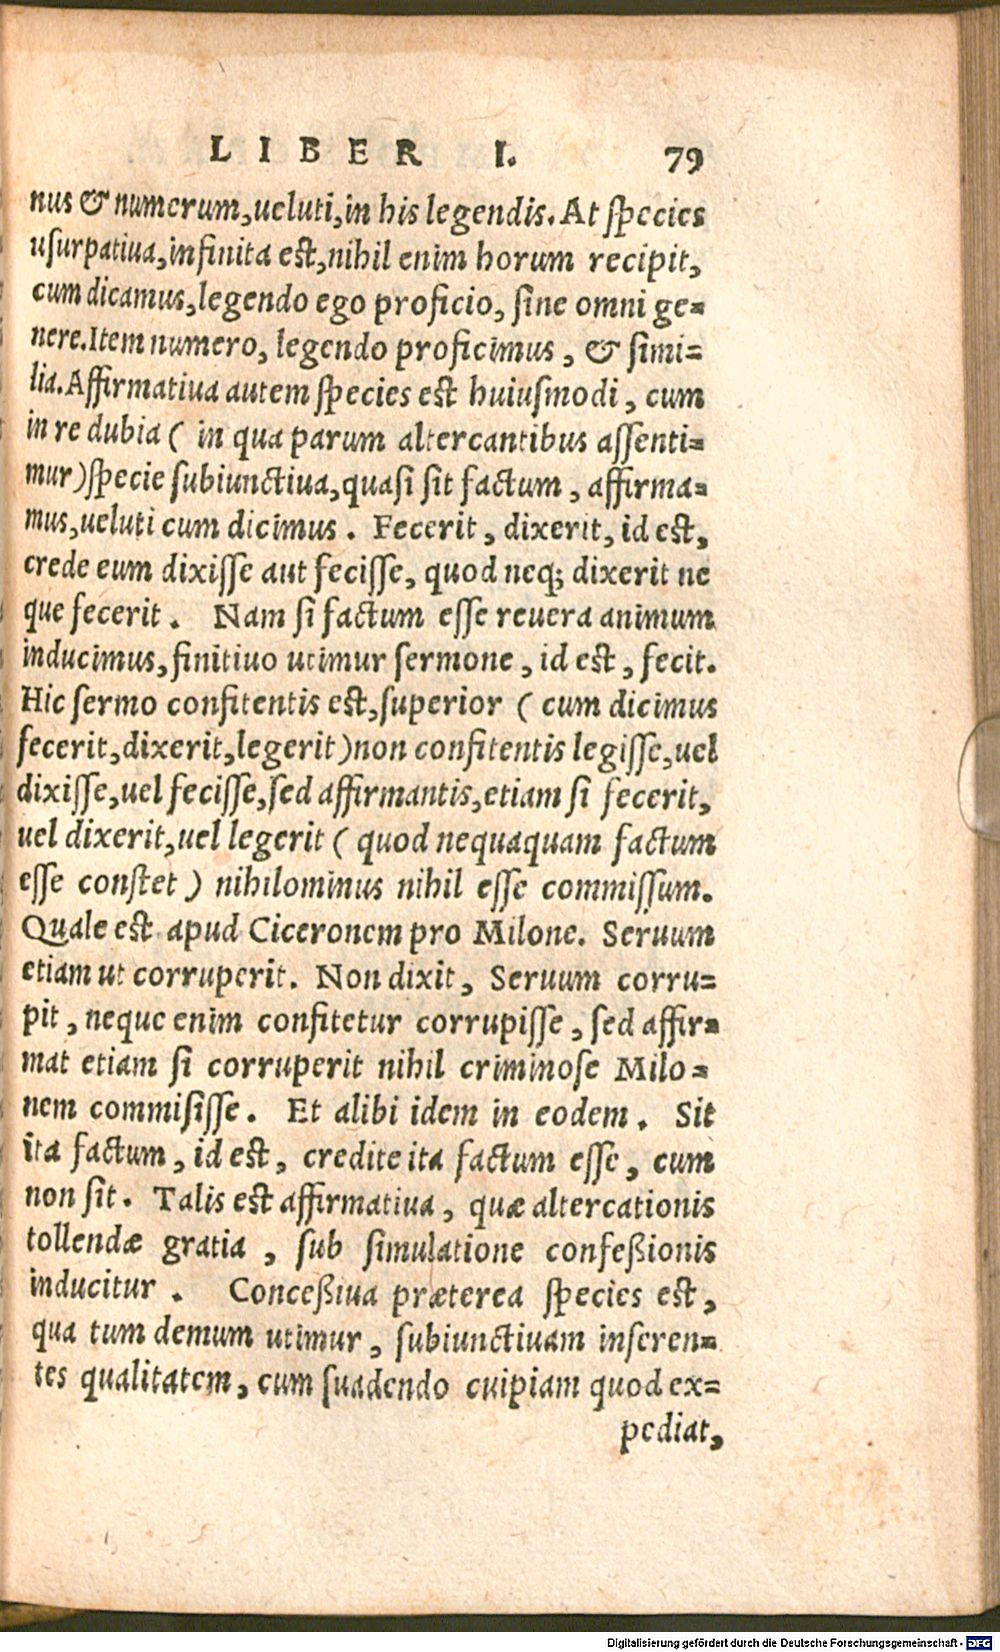 LIBER I. 79
nus & numerum,ueluti,in his legendis. At ſpecies
uſurpatiua,infinita est,nihil enim horum recipit,
cum dicamus,legendo ego proficio, ſine omni ge-
nere.Item numero, legendo proficimus, & ſimi-
lia.Affirmatiua autem ſpecies est huiuſmodi, cum
in re dubia ( in qua parum altercantibus aſſenti-
mur)ſpecie ſubiunctiua,quaſi ſit factum, affirma-
mus,ueluti cum dicimus. Fecerit, dixerit, id est,
crede eum dixiſſe aut feciſſe, quod neq; dixerit ne
que fecerit. Nam ſi factum eſſe reuera animum
inducimus,finitiuo utimur ſermone, id est, fecit.
Hic ſermo confitentis est,ſuperior ( cum dicimus
fecerit,dixerit,legerit)non confitentis legiſſe,uel
dixiſſe,uel feciſſe,ſed affirmantis,etiam ſi fecerit,
uel dixerit,uel legerit ( quod nequaquam factum
eſſe conſtet ) nihilominus nihil eſſe commiſſum.
Quale est apud Ciceronem pro Milone. Seruum
etiam ut corruperit. Non dixit, Seruum corru-
pit, neque enim confitetur corrupiſſe, ſed affir-
mat etiam ſi corruperit nihil criminoſe Milo-
nem commiſiſſe. Et alibi idem in eodem. Sit
ita factum, id est, credite ita factum eſſe, cum
non ſit. Talis est affirmatiua, quæ altercationis
tollendæ gratia, ſub ſimulatione confeßionis
inducitur. Conceßiua præterea ſpecies est,
qua tum demum utimur, ſubiunctiuam inſeren-
tes qualitatem, cum ſuadendo cuipiam quod ex-
pediat,
Digitalisierung gefördert durch die Deutsche Forschungsgemeinschaft - DFG